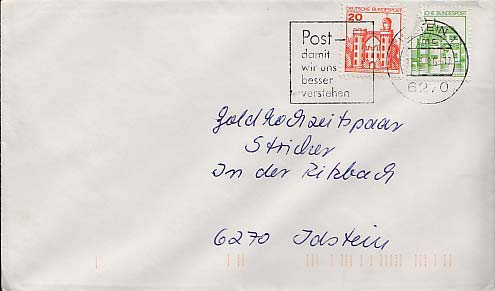 Post-
damit
wir uns
besser
verstehen
20
DEUTSCHE BUNDESPOST
6270
Goldhochzeitspaar
Stricker
In der Ritzbach
6270 Idstein